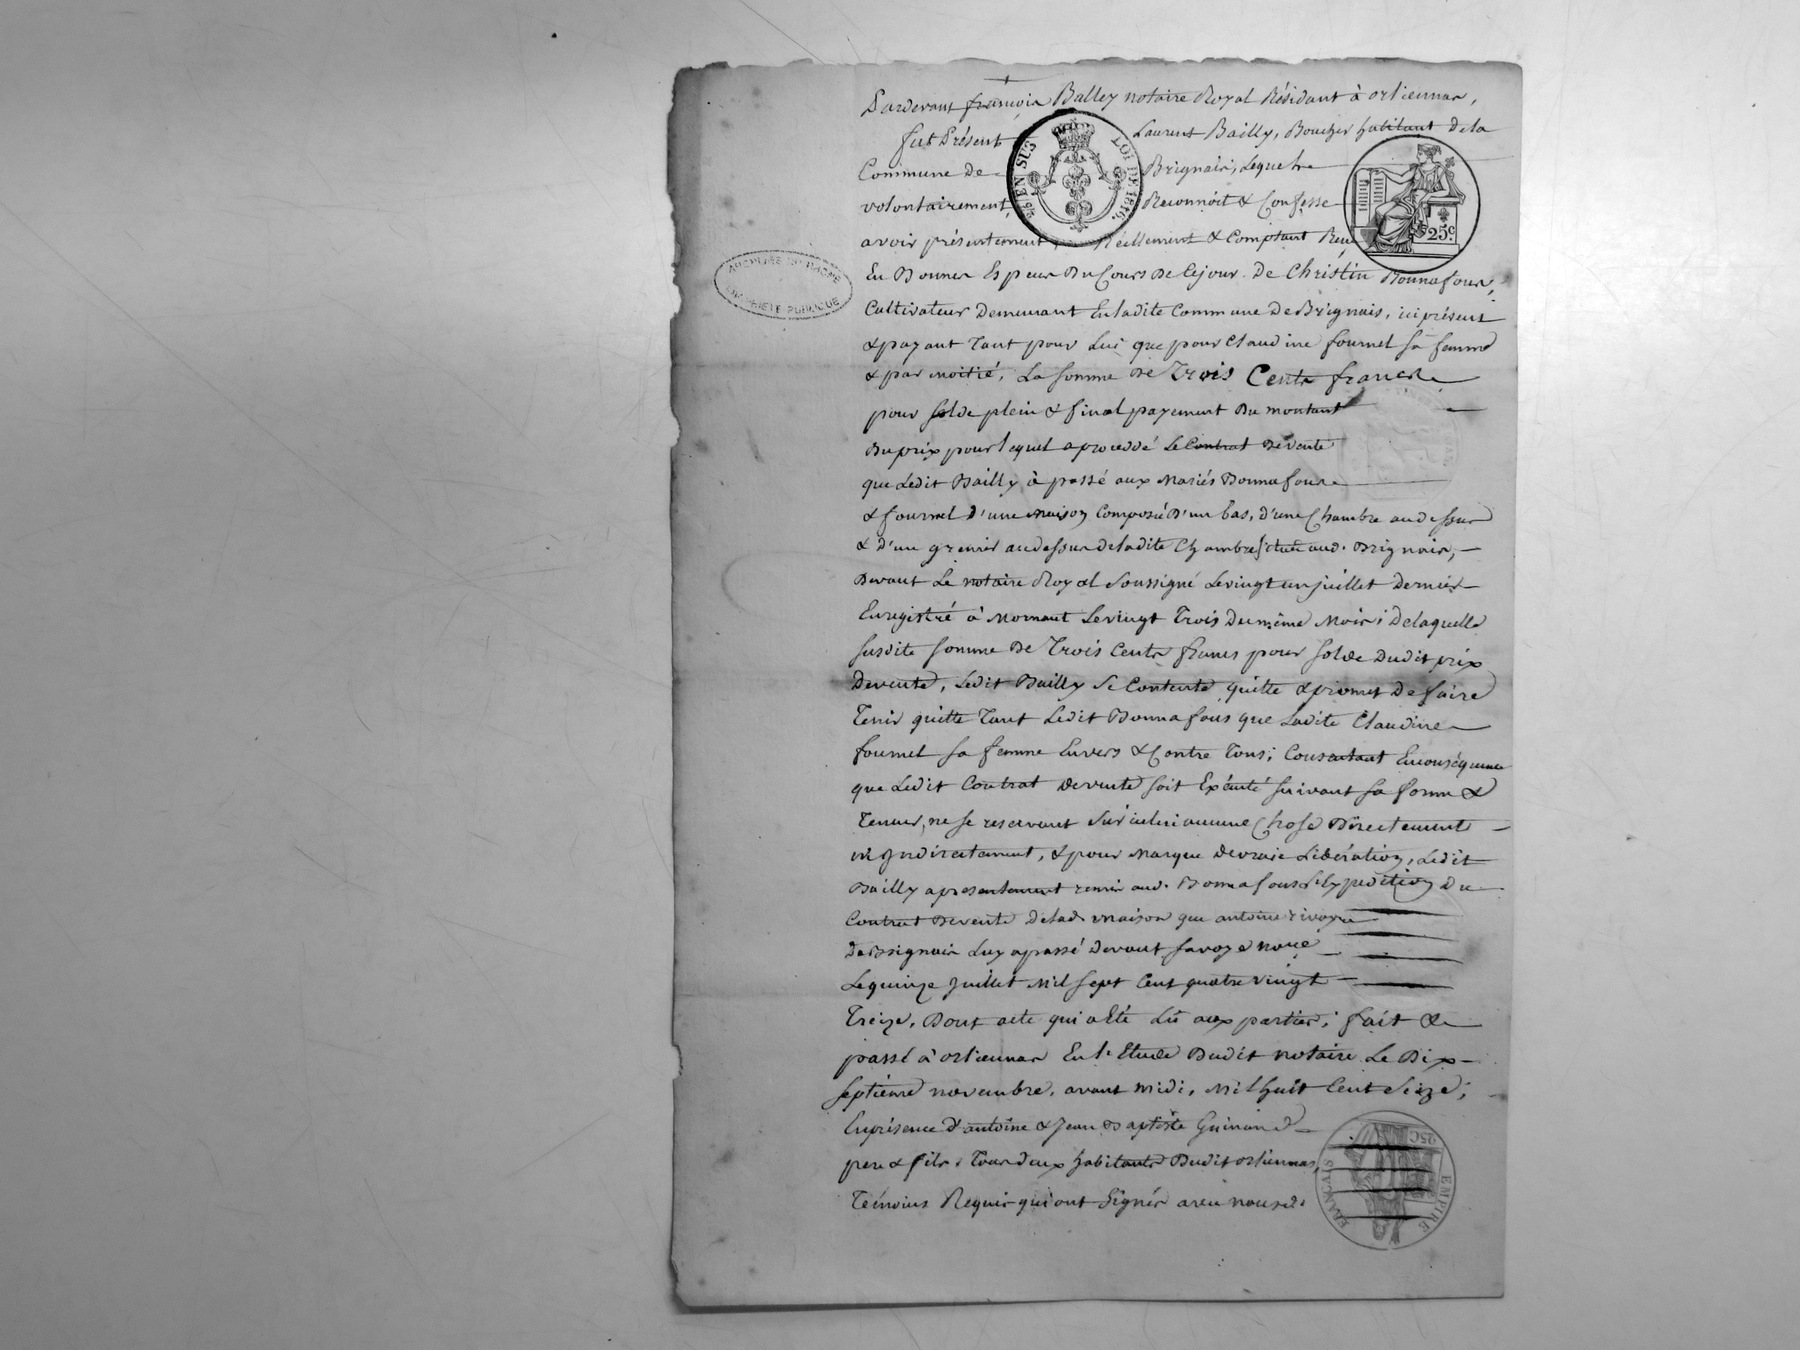 Pardevant françois Balley notaire Royal Résidant à orliennas,
fut Présent Laurent Bailly, Boucher habitant de la
Commune de Brignais, Lequel
volontairement Reconnoit & Confesse
avoir présentement, Réellement & Comptant Reçu
En Bonnes Especes Du Cours De Cejour De Christin Bonnafous,
Cultivateur Demeurant En ladite Commune De Brignais, ici présent
& payant Tant pour Lui que pour Claudine fournel sa femme
& par moitié, La somme de Trois Cents francs
pour solde plein & final payement Du montant
Du prix pour lequel a procedé Le Contrat De vente
que Ledit Bailly à passé aux Mariés Bonnafous
& fournel d'une maison Composée D'un bas, d'une Chambre au dessus
& d'un grenier audessus deladite Chambre située aud. Brignais,
Devant Le notaire Royal Soussigné Le vingt un juillet Dernier
Enregistré à Mornant Le vingt Trois Du même Mois; De laquelle
susdite somme De Trois Cents francs pour solde Dudit prix
De vente, Ledit Bailly Se Contente, quitte & promet De faire
Tenir quitte Tant Ledit Bonnafous que Ladite Claudine
fournel sa femme Envers & Contre Tous; Consentant En conséquence
que Ledit Contrat De vente soit Exécuté suivant sa forme &
Teneur, ne se reservant Sur icelui aucune Chose Directement
ni Indirectement, & pour Marque De vraie Libération, Ledit
Bailly a presentement remis aud. Bonnafous L'Expedition Du
Contrat De vente De lad. maison que antoine rivoyre
De Brignais Luy a passé Devant Savoye nore
Le quinze Juillet Mil sept Cent quatre vingt
Treize, Dont acte qui a Eté Lû aux parties; fait &
passé à orliennas En l'Etude Dudit notaire Le Dix
septième novembre, avant midi, Mil huit Cent Seize;
En présence d'antoine & Jean Baptiste Guinand
pere & fils, Tous deux habitants Dudit orliennas,
Témoins Requis qui ont Signés avec nousd.
EN SUS
LOI DE 1816.
25c
ARCHIVES DU RHONE
PROPRIÉTÉ PUBLIQUE
EMPIRE
FRANÇAIS
25C